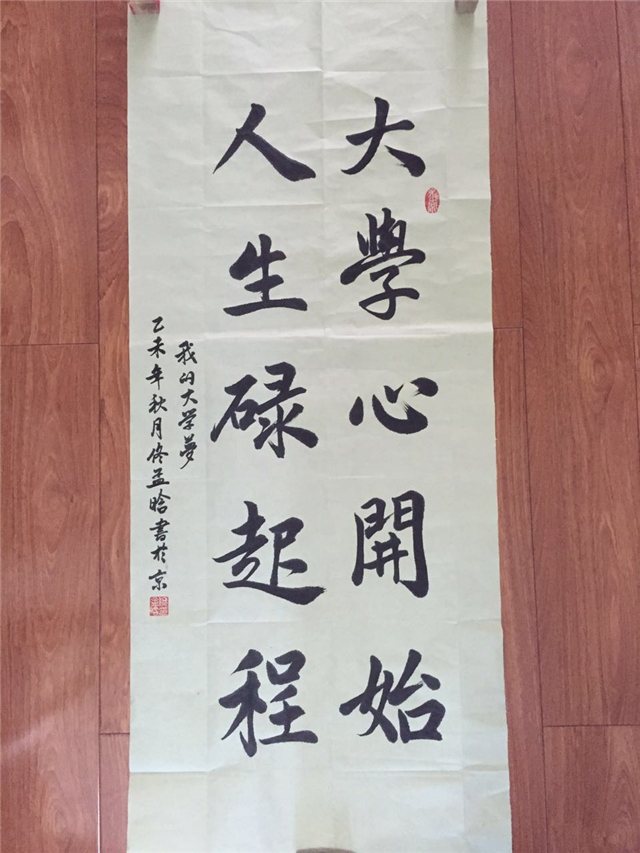 大學心開始
人生碌起程
我的大学夢
乙未年秋月佟孟晗書於京